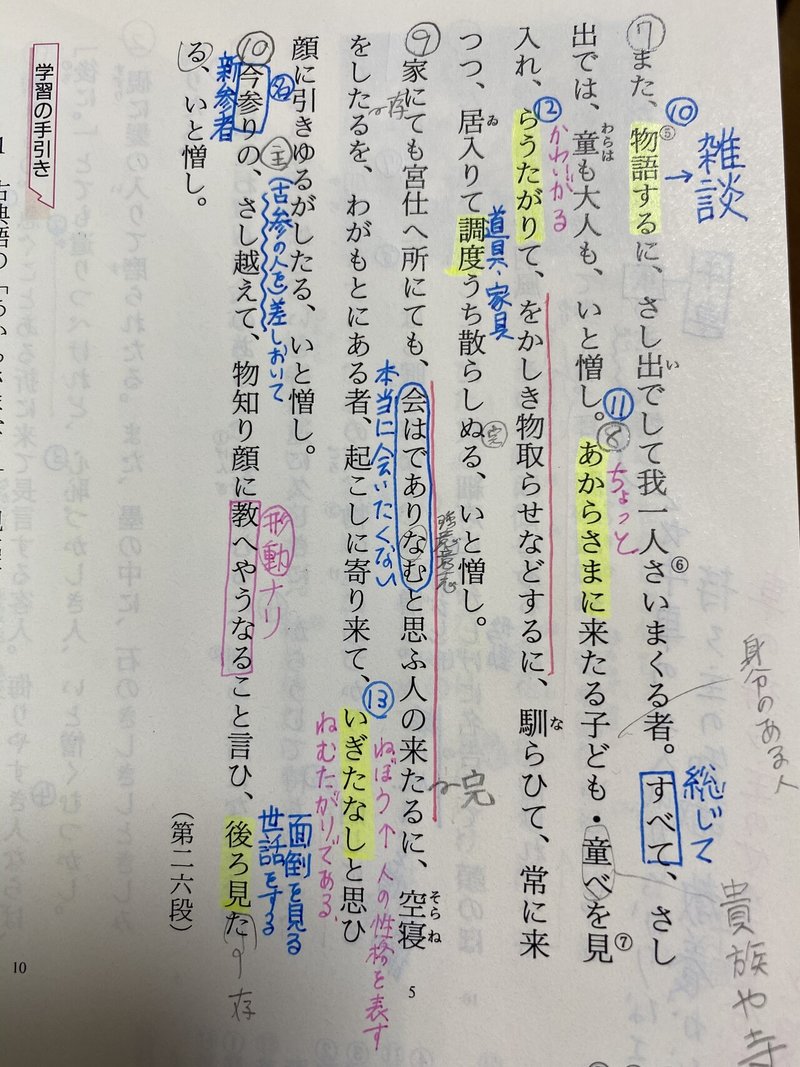 ⑦また、物語するに、さし出でして我一人さいまくる者。すべて、さし
い
⑤
⑥
⑩
→雑談
総じて
身分のある人
貴族や寺
出では、童も大人も、いと憎し。⑧あからさまに来たる子ども・童べを見
わらは
⑦
⑪
ちょっと
入れ、らうたがりて、をかしき物取らせなどするに、馴らひて、常に来
な
⑫
かわいがる
つつ、居入りて調度うち散らしぬる、いと憎し。
ゐ
道具・家具
完
⑨家にても宮仕へ所にても、会はでありなむと思ふ人の来たるに、空寝
そらね
強意
意志
本当に会いたくない
〜完
5
をしたるを、わがもとにある者、起こしに寄り来て、いぎたなしと思ひ
〜存
⑬
ねぼう↑人の性格を表す
ねむたがりである、
顔に引きゆるがしたる、いと憎し。
⑩今参りの、さし越えて、物知り顔に教へやうなること言ひ、後ろ見た
名
新参者
主
(古参の人を)差しおいて
形動ナリ
面倒を見る
世話をする
存
る、いと憎し。
(第二六段)
学習の手引き
10